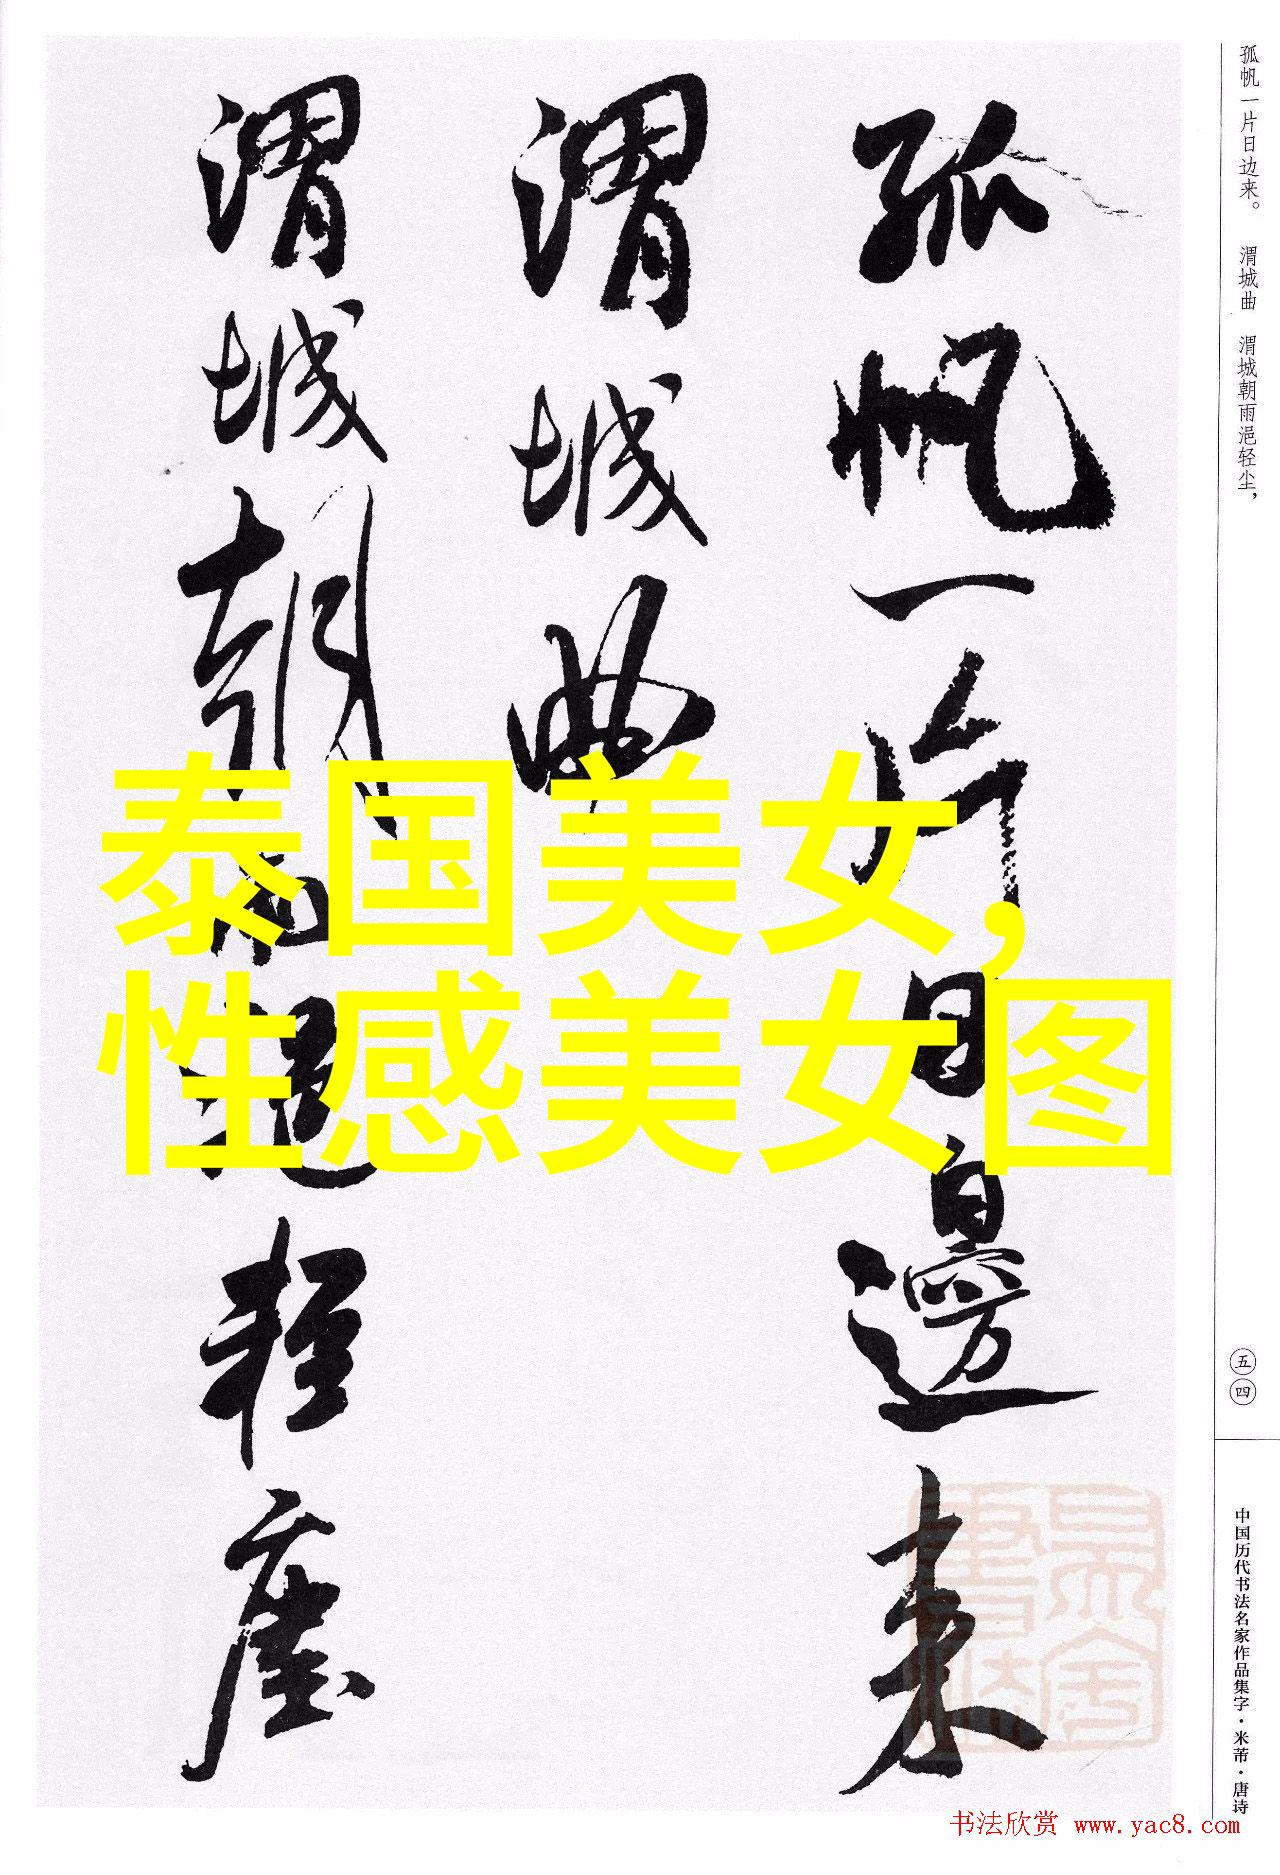 孤帆一片日边来。 渭城曲 渭城朝雨浥轻尘，
孤帆一片日邊来
渭城曲
渭城朝雨浥轻塵
泰国美女，
性感美女图
五四
中国历代书法名家作品集字·米芾·唐诗
书法欣赏 www.yac8.com